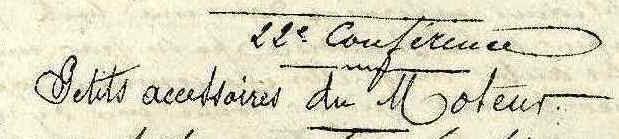 22e Conférence
Petits accessoires du Moteur.